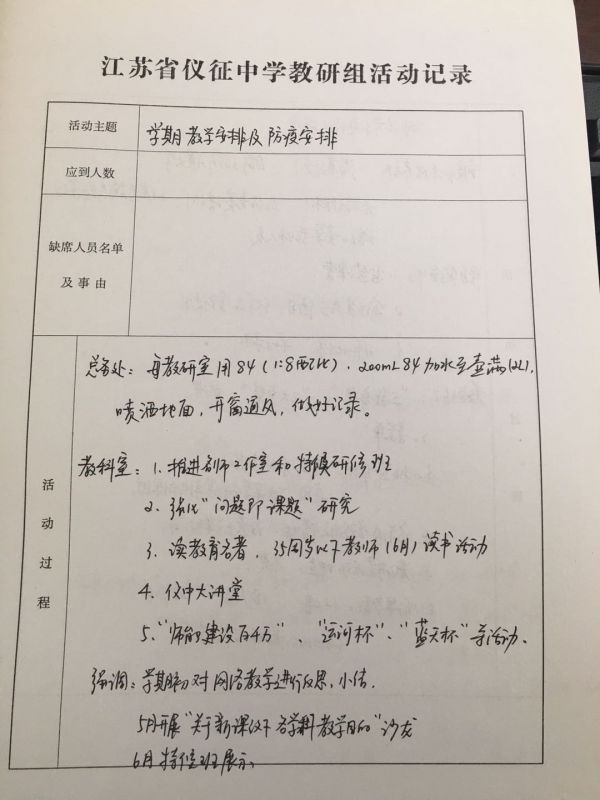 江苏省仪征中学教研组活动记录
活动主题
学期教学安排及防疫安排
应到人数
缺席人员名单
及事由
活动过程
总务处：每教研室用84（1:8配比），200mL 84加水至壶满（2L），
喷洒地面，开窗通风，做好记录。
教科室：1. 推进名师工作室和特侯研修班
2. 强化“问题即课题”研究
3. 读教育名著，35周岁以下教师（6月）读书活动
4. 仪中大讲堂
5. “师能建设百千万”、“运河杯”、“蓝天杯”等活动。
强调：学期初对网络教学进行反思，小结，
5月开展“关于新课以下各学科教学目的”沙龙
6月特侯班展示